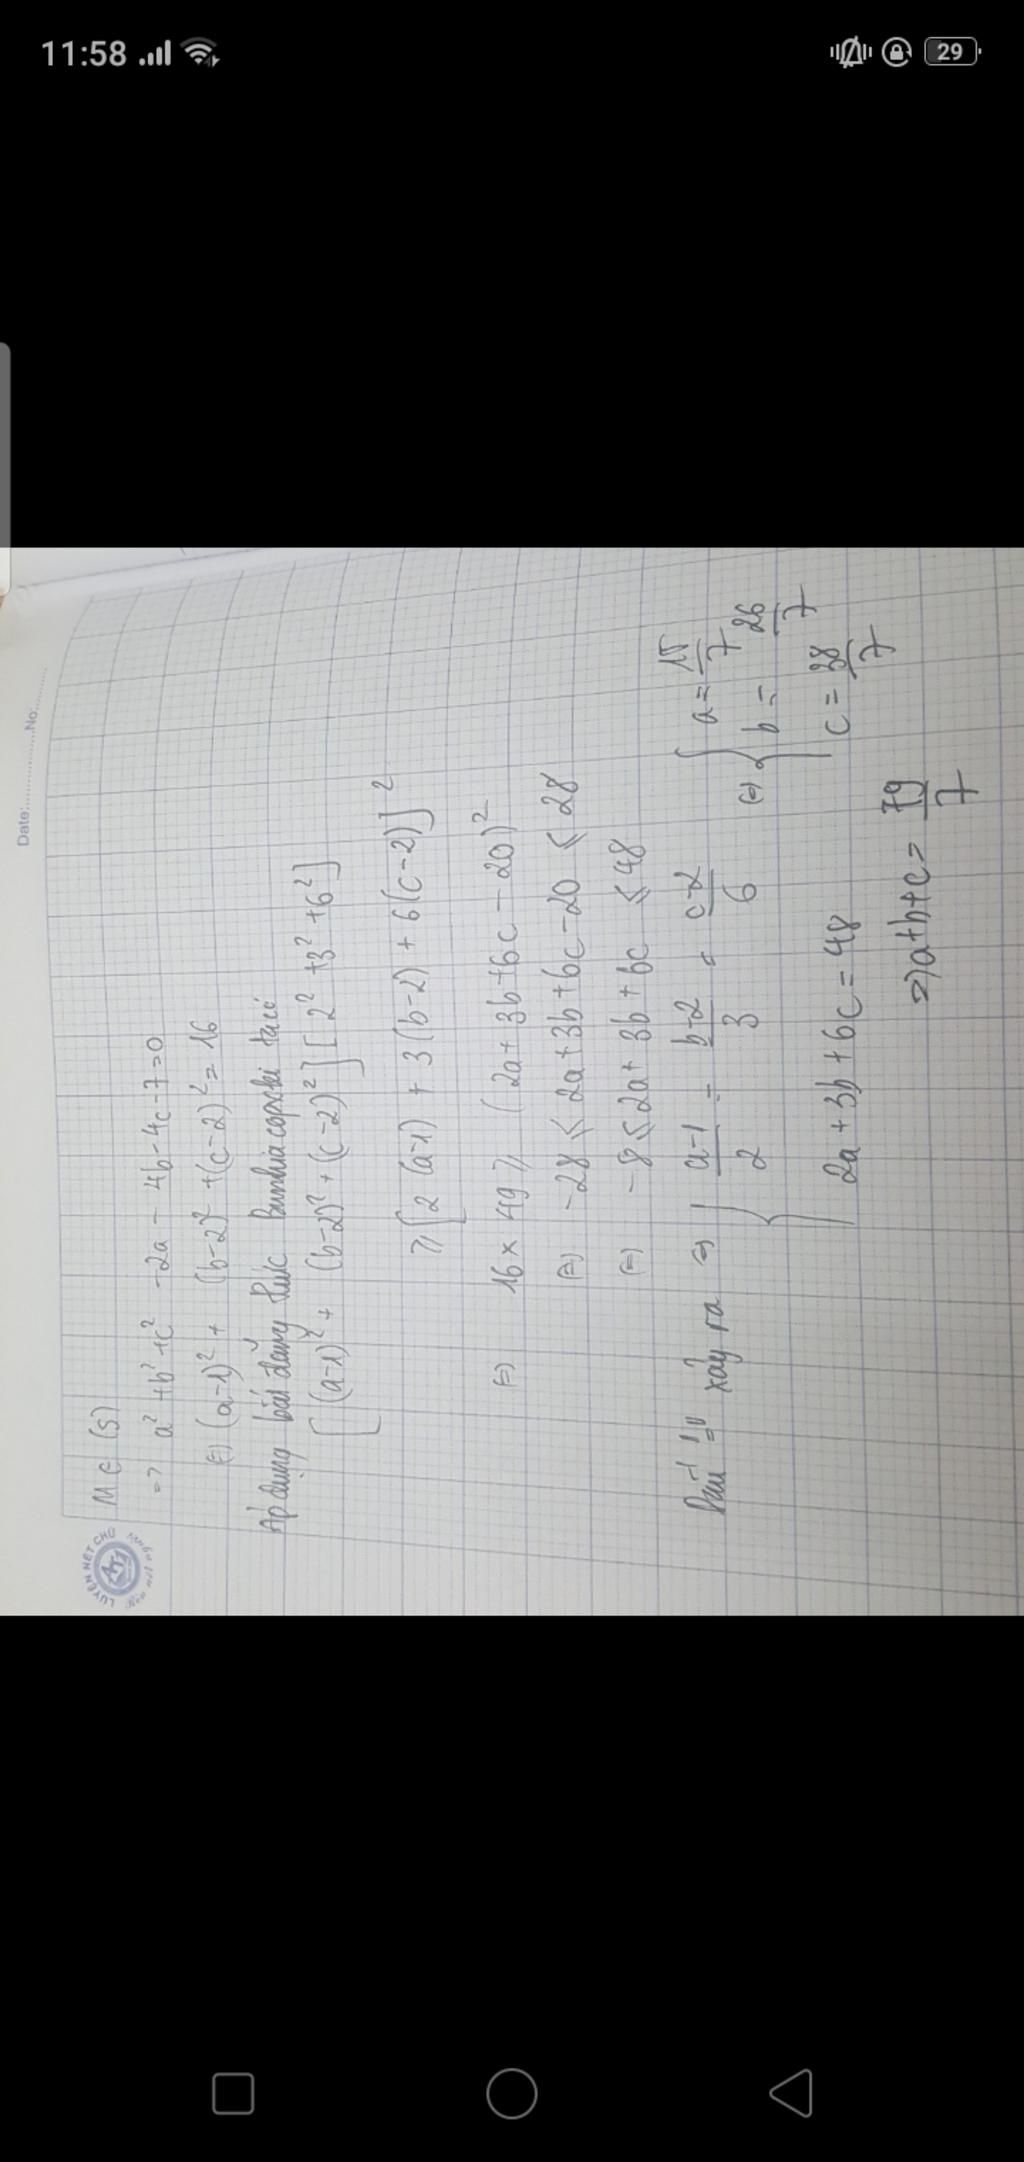 11:58
29
Date:....................No:............
LUYỆN NÉT CHỮ
M ∈ (S)
=> a² + b² + c² - 2a - 4b - 4c - 7 = 0
(=) (a-1)² + (b-2)² + (c-2)² = 16
Áp dụng bất đẳng thức Bunhiacopxki ta có
[(a-1)² + (b-2)² + (c-2)²] [2² + 3² + 6²]
≥ [2(a-1) + 3(b-2) + 6(c-2)]²
(=) 16 x 49 ≥ (2a + 3b + 6c - 20)²
(=) -28 ≤ 2a + 3b + 6c - 20 ≤ 28
(=) -8 ≤ 2a + 3b + 6c ≤ 48
Dấu "=" xảy ra => { a-1/2 = b-2/3 = c-2/6 (=) { a = 15/7
2a + 3b + 6c = 48 b = 26/7
c = 38/7
=> a+b+c = 79/7